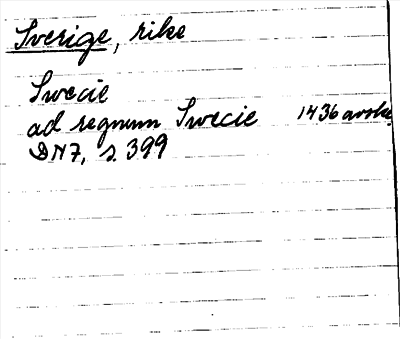 Sverige, rike
Swecie
ad regnum Swecie 1436 avskr.
DN7, s. 399